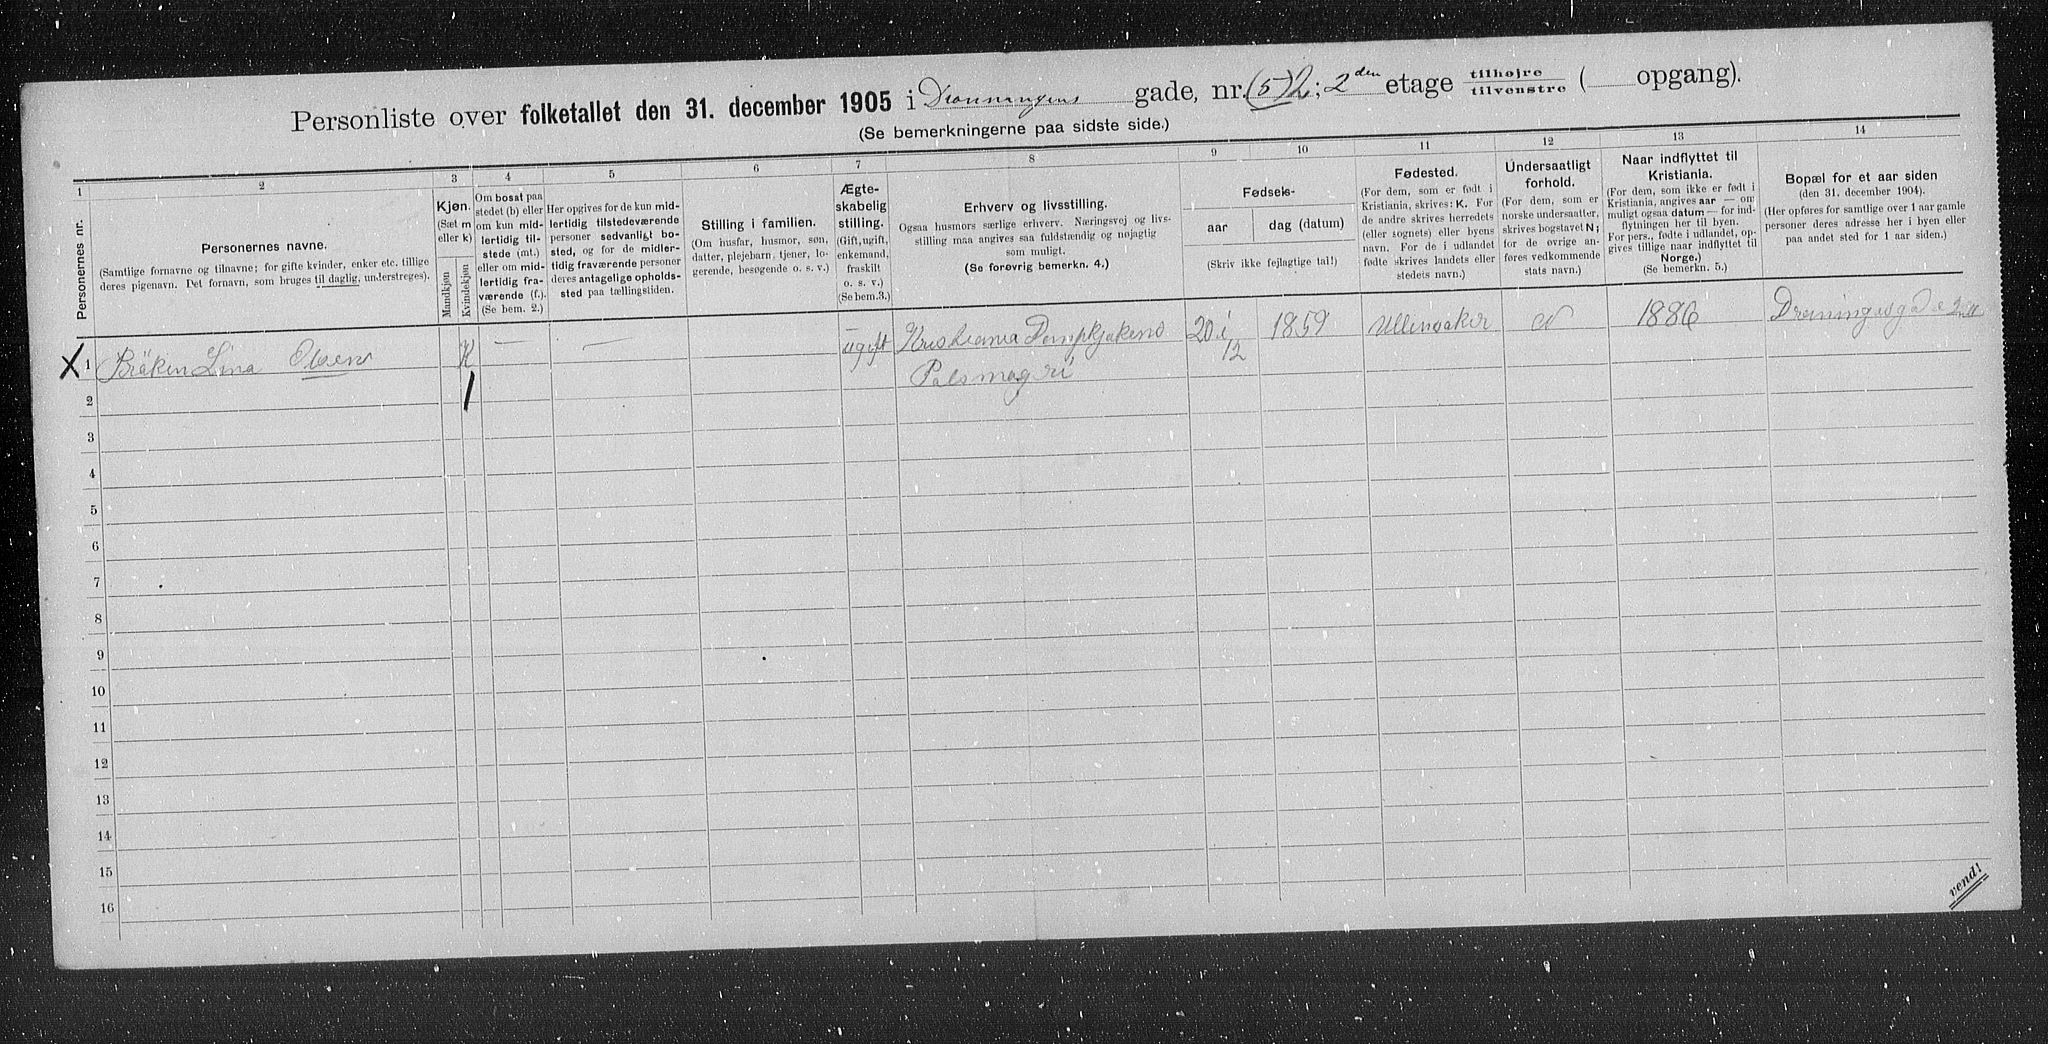 Personliste over folketallet den 31. december 1905 i Dronningens gade, nr. (5) 2; 2den etage tilhøjre tilvenstre ( opgang).
(Se bemerkningerne paa sidste side.)
1 2 3 4 5 6 7 8 9 10 11 12 13 14
Personernes nr.
Personernes navne.
(Samtlige fornavne og tilnavne; for gifte kvinder, enker etc. tillige
deres pigenavn. Det fornavn, som bruges til daglig, understreges).
Kjøn.
(Sæt m
eller k)
Mandkjøn
Kvindekjøn
Om bosat paa
stedet (b) eller
om kun mid-
lertidig til-
stede (mt.)
eller om mid-
lertidig fra-
værende (f.).
(Se bem. 2.)
Her opgives for de kun mid-
lertidig tilstedeværende
personer sedvanligt bo-
sted, og for de midler-
tidig fraværende personer
deres antagelige opholds-
sted paa tællingstiden.
Stilling i familien.
(Om husfar, husmor, søn,
datter, plejebarn, tjener, lo-
gerende, besøgende o. s. v.)
Ægte-
skabelig
stilling.
(Gift, ugift,
enkemand,
fraskilt
o. s. v.)
(Se bem.3.)
Erhverv og livsstilling.
Ogsaa husmors særlige erhverv. Næringsvej og livs-
stilling maa angives saa fuldstændig og nøjagtig
som muligt.
(Se forøvrig bemerkn. 4.)
Fødsels-
aar dag (datum)
(Skriv ikke fejlagtige tal!)
Fødested.
(For dem, som er født i
Kristiania, skrives: K. For
de andre skrives herredets
(eller sognets) eller byens
navn. For de i udlandet
fødte skrives landets eller
stedets navn.)
Undersaatligt
forhold.
(For dem, som er
norske undersaatter,
skrives bogstavet N;
for de øvrige an-
føres vedkommende
stats navn.)
Naar indflyttet til
Kristiania.
(For dem, som ikke er født i
Kristiania, angives aar — om
muligt ogsaa datum — for ind-
flytningen her til byen.
For pers., fødte i udlandet, op-
gives tillige naar indflyttet til
Norge.)
(Se bemerkn. 5.)
Bopæl for et aar siden
(den 31. december 1904).
(Her opføres for samtlige over 1 aar gamle
personer deres adresse her i byen eller
paa andet sted for 1 aar siden.)
X 1 Bråken Lina Olsen K — — ugift Kristiania Dampkjøkens 20 i 1859 Ullensaker N 1886
1 12
2
3
4
5
6
7
8
9
10
11
12
13
14
15
16
vend!